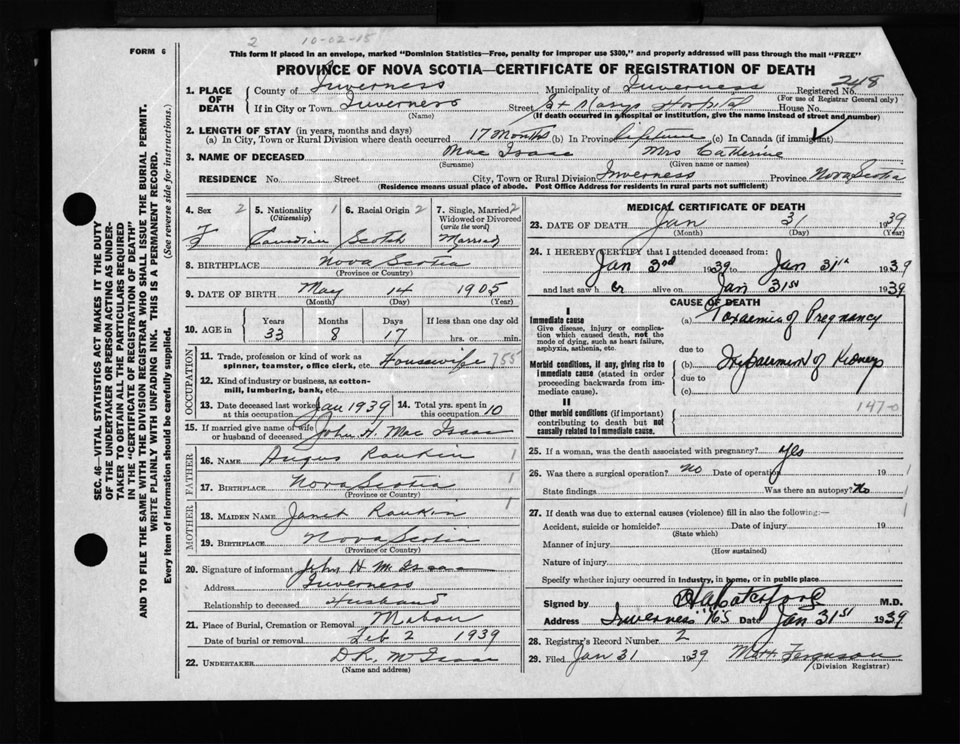 2 10-02-15
FORM 6
This form if placed in an envelope, marked "Dominion Statistics—Free, penalty for improper use $300," and properly addressed will pass through the mail "FREE"
PROVINCE OF NOVA SCOTIA—CERTIFICATE OF REGISTRATION OF DEATH
248
1. PLACE OF DEATH County of Inverness Municipality of Inverness Registered No.
(For use of Registrar General only)
If in City or Town Inverness Street St Marys Hospital House No.
(Name) (If death occurred in a hospital or institution, give the name instead of street and number)
2. LENGTH OF STAY (in years, months and days)
(a) In City, Town or Rural Division where death occurred 17 Months (b) In Province Lifetime (c) In Canada (if immigrant) ✓
3. NAME OF DECEASED Mac Isaac Mrs Catherine
(Surname) (Given name or names)
RESIDENCE No. Street City, Town or Rural Division Inverness Province Nova Scotia
(Residence means usual place of abode. Post Office Address for residents in rural parts not sufficient)
SEC. 46—VITAL STATISTICS ACT MAKES IT THE DUTY
OF THE UNDERTAKER OR PERSON ACTING AS UNDER-
TAKER TO OBTAIN ALL THE PARTICULARS REQUIRED
IN THE "CERTIFICATE OF REGISTRATION OF DEATH"
AND TO FILE THE SAME WITH THE DIVISION REGISTRAR WHO SHALL ISSUE THE BURIAL PERMIT.
WRITE PLAINLY WITH UNFADING INK. THIS IS A PERMANENT RECORD.
Every item of information should be carefully supplied. (See reverse side for instructions.)
4. Sex 2 F
5. Nationality 1 (Citizenship) Canadian
6. Racial Origin 2 Scotch
7. Single, Married 2 Widowed or Divorced (write the word) Married
8. BIRTHPLACE Nova Scotia
(Province or Country)
9. DATE OF BIRTH May 14 1905
(Month) (Day) (Year)
10. AGE in Years Months Days If less than one day old
33 8 17 hrs. or min.
OCCUPATION
11. Trade, profession or kind of work as spinner, teamster, office clerk, etc. Housewife 755
12. Kind of industry or business, as cotton-mill, lumbering, bank, etc.
13. Date deceased last worked at this occupation Jan 1939 14. Total yrs. spent in this occupation 10
15. If married give name of wife or husband of deceased John H. Mac Isaac
FATHER
16. NAME Angus Rankin 1
17. BIRTHPLACE Nova Scotia 1
(Province or Country)
MOTHER
18. MAIDEN NAME Janet Rankin 1
19. BIRTHPLACE Nova Scotia
(Province or Country)
20. Signature of informant John H McIsaac
Address Inverness
Relationship to deceased Husband
21. Place of Burial, Cremation or Removal Mabou
Date of burial or removal Feb 2 1939
22. UNDERTAKER D.R. McIsaac
(Name and address)
MEDICAL CERTIFICATE OF DEATH
23. DATE OF DEATH Jan 31 1939
(Month) (Day) (Year)
24. I HEREBY CERTIFY that I attended deceased from:
Jan 3rd 1939 to Jan 31st 1939
and last saw h er alive on Jan 31st 1939
CAUSE OF DEATH
I
Immediate cause (a) Toxaemia of Pregnancy
Give disease, injury or complication which caused death, not the mode of dying, such as heart failure, asphyxia, asthenia, etc.
due to
Morbid conditions, if any, giving rise to immediate cause (stated in order proceeding backwards from immediate cause). (b) Impairment of Kidneys
due to
(c)
II
147-0
Other morbid conditions (if important) contributing to death but not causally related to immediate cause.
25. If a woman, was the death associated with pregnancy? Yes
26. Was there a surgical operation? No Date of operation 19 1
State findings Was there an autopsy? No 1
27. If death was due to external causes (violence) fill in also the following:—
Accident, suicide or homicide? Date of injury 19
(State which)
Manner of injury
(How sustained)
Nature of injury
Specify whether injury occurred in Industry, in home, or in public place
Signed by M.D.
Address Inverness NS Date Jan 31st 1939
28. Registrar's Record Number 2
29. Filed Jan 31 1939 Ferguson
(Division Registrar)